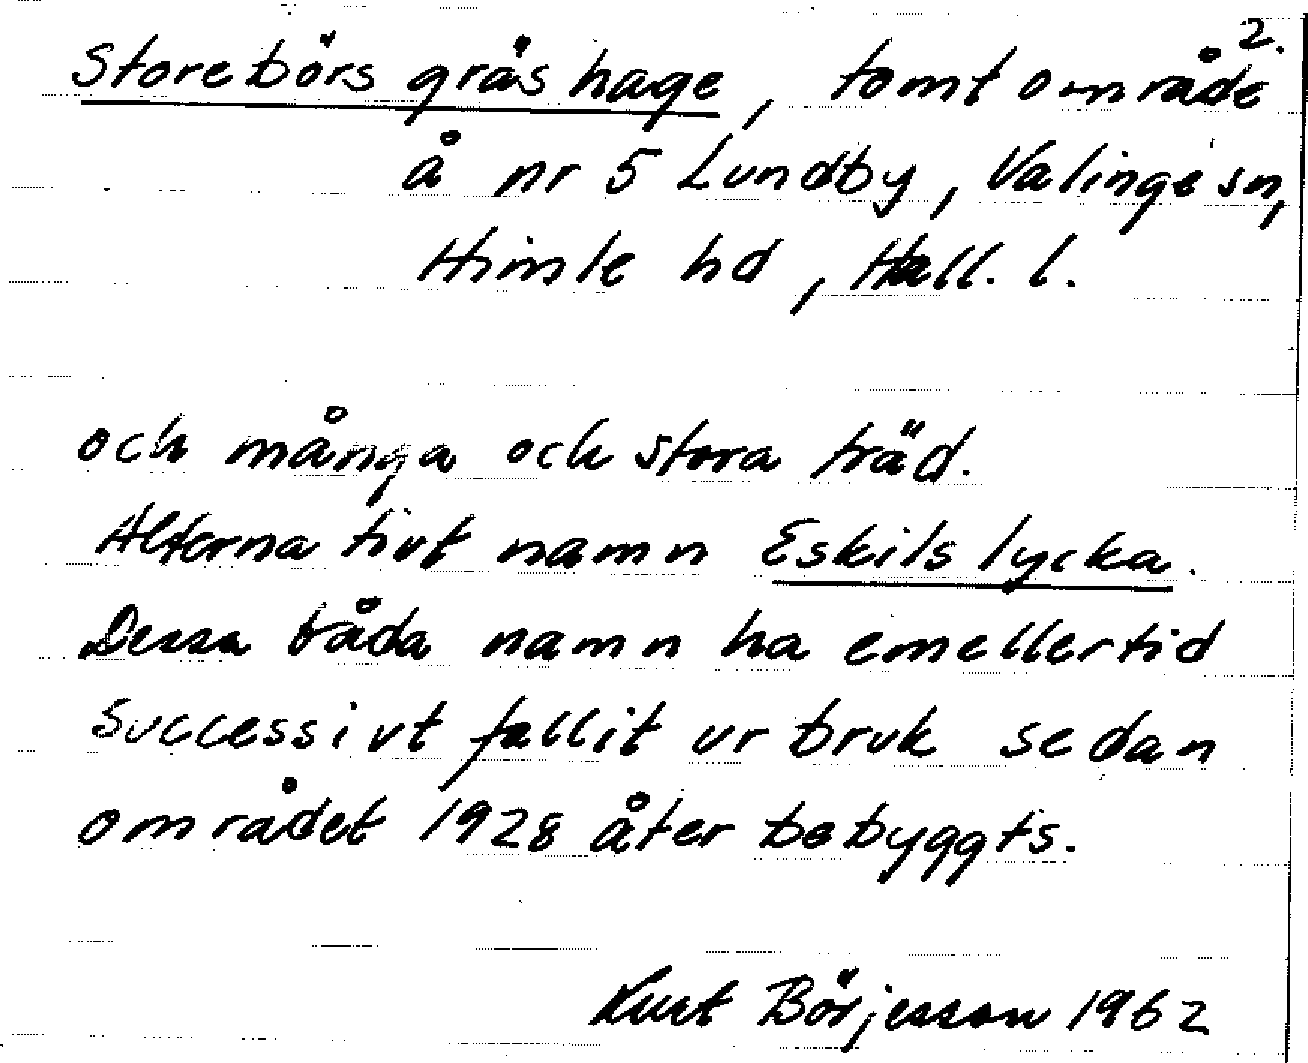 2.
Storebörs gräshage, tomtområde
å nr 5 Lundby, Valinge sn,
Himle hd, Hall. l.
och många och stora träd.
Alternativt namn Eskils lycka.
Dessa båda namn ha emellertid
successivt fallit ur bruk sedan
området 1928 åter bebyggts.
Kurt Börjesson 1962